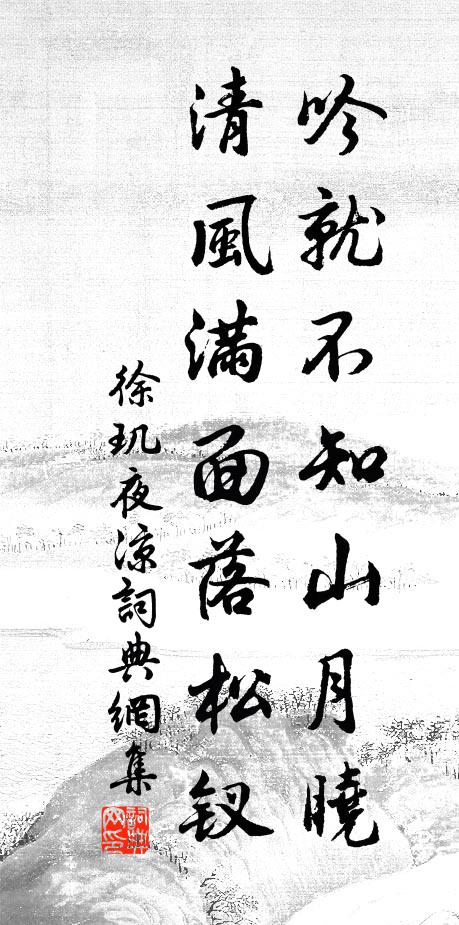 吟就不知山月曉
清風滿面落松釵
徐玑夜凉詞典網集